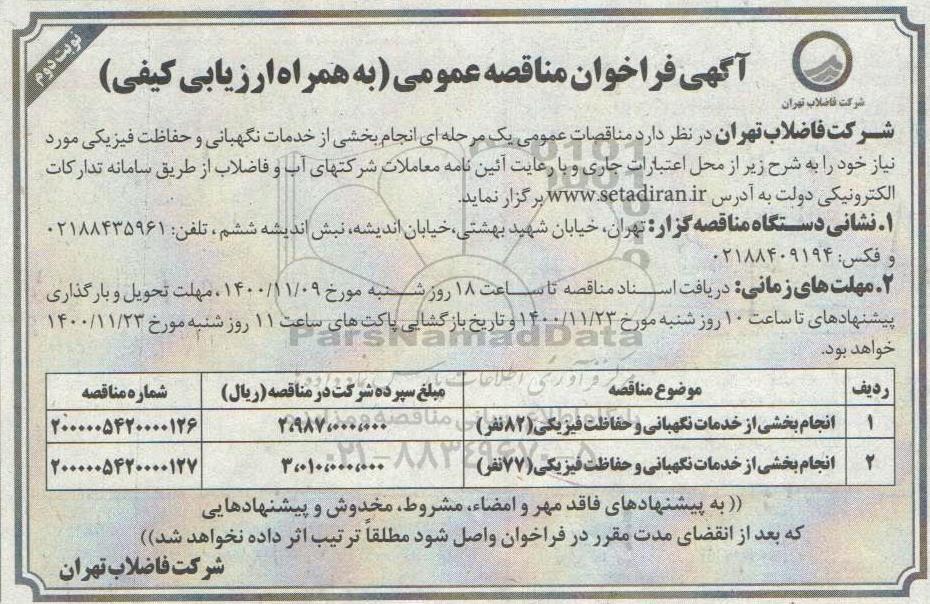 نوبت دوم
شرکت فاضلاب تهران
آگهی فراخوان مناقصه عمومی (به همراه ارزیابی کیفی)
شرکت فاضلاب تهران در نظر دارد مناقصات عمومی یک مرحله ای انجام بخشی از خدمات نگهبانی و حفاظت فیزیکی مورد
نیاز خود را به شرح زیر از محل اعتبارات جاری و با رعایت آئین نامه معاملات شرکتهای آب و فاضلاب از طریق سامانه تدارکات
الکترونیکی دولت به آدرس www.setadiran.ir برگزار نماید.
۱. نشانی دستگاه مناقصه گزار: تهران، خیابان شهید بهشتی،خیابان اندیشه، نبش اندیشه ششم ، تلفن: ۰۲۱۸۸۴۳۵۹۶۱
و فکس: ۰۲۱۸۸۴۰۹۱۹۴
۲. مهلت های زمانی: دریافت اسناد مناقصه تا ساعت ۱۸ روز شنبه مورخ ۱۴۰۰/۱۱/۰۹ ، مهلت تحویل و بارگذاری
پیشنهادهای تا ساعت ۱۰ روز شنبه مورخ ۱۴۰۰/۱۱/۲۳ و تاریخ بازگشایی پاکت های ساعت ۱۱ روز شنبه مورخ ۱۴۰۰/۱۱/۲۳
خواهد بود.
ردیف موضوع مناقصه مبلغ سپرده شرکت در مناقصه (ریال) شماره مناقصه
۱ انجام بخشی از خدمات نگهبانی و حفاظت فیزیکی (۸۲نفر) ۲،۹۸۷،۰۰۰،۰۰۰ ۲۰۰۰۰۰۵۴۲۰۰۰۰۱۲۶
۲ انجام بخشی از خدمات نگهبانی و حفاظت فیزیکی (۷۷نفر) ۳،۰۱۰،۰۰۰،۰۰۰ ۲۰۰۰۰۰۵۴۲۰۰۰۰۱۲۷
(( به پیشنهادهای فاقد مهر و امضاء، مشروط، مخدوش و پیشنهادهایی
که بعد از انقضای مدت مقرر در فراخوان واصل شود مطلقاً ترتیب اثر داده نخواهد شد))
شرکت فاضلاب تهران
ParsNamadData